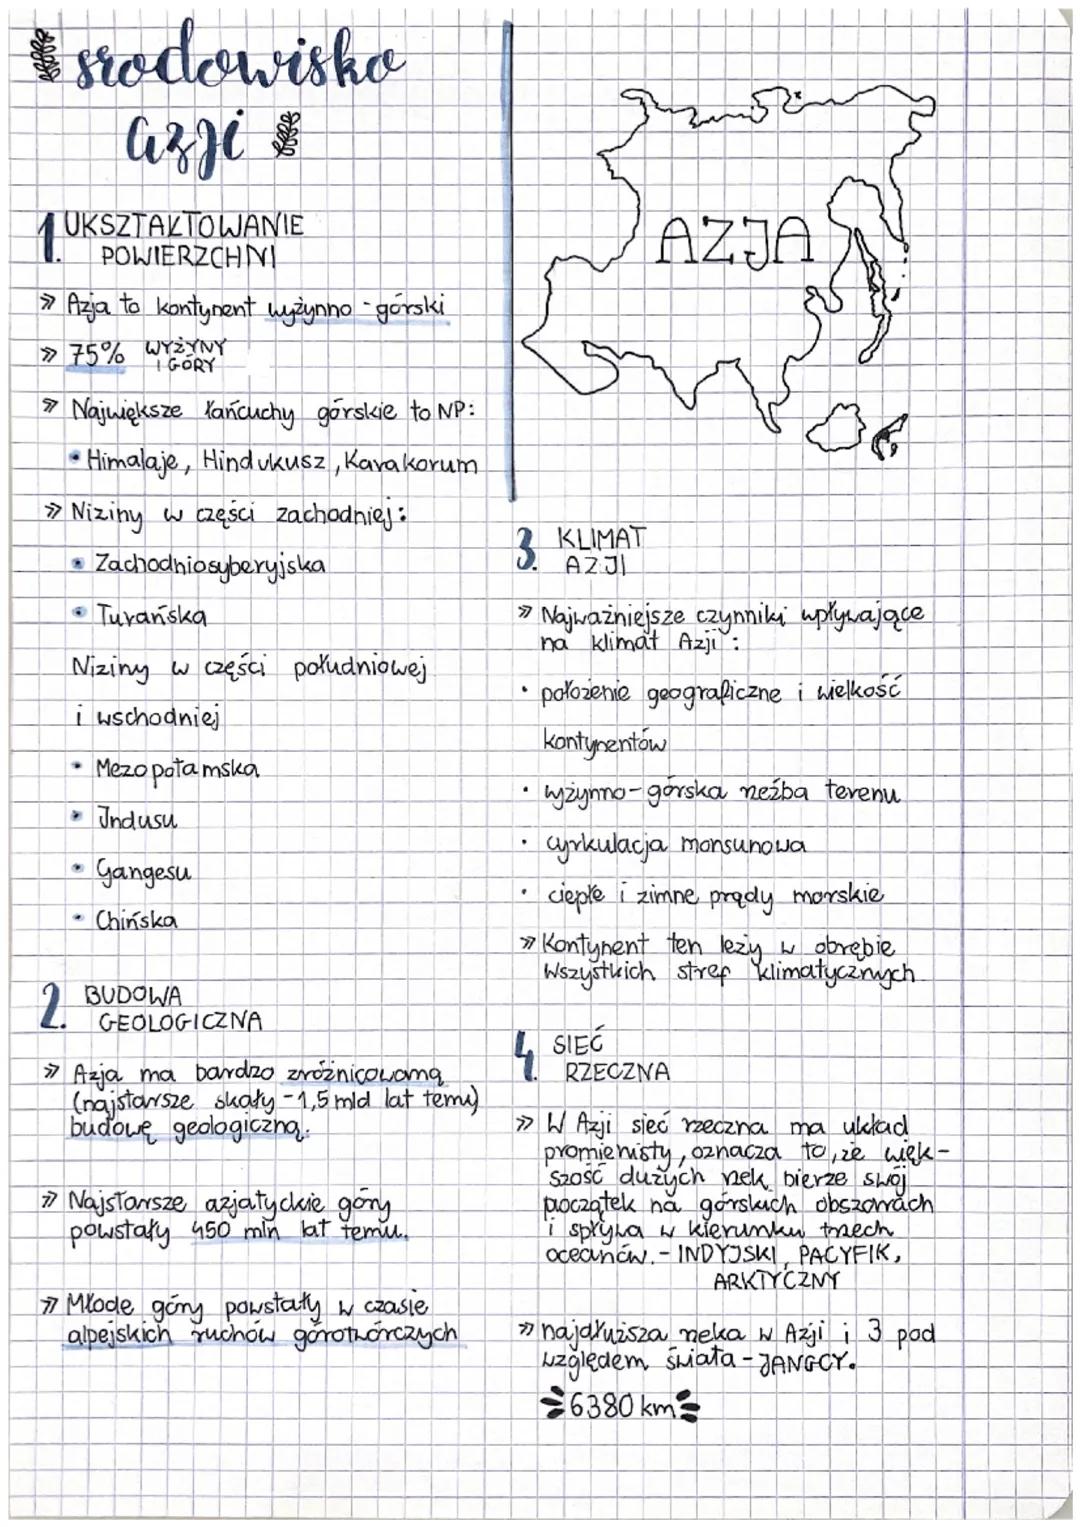 środowisko
azji
1. UKSZTAŁTOWANIE
POWIERZCHNI
» Azja to kontynent wyżynno-górski
» 75% WYŻYNY
I GÓRY
» Największe łańcuchy górskie to NP:
• Himalaje, Hindukusz, Karakorum
» Niziny w części zachodniej:
• Zachodniosyberyjska
• Turańska
Niziny w części południowej
i wschodniej
• Mezopotamska
• Indusu
• Gangesu
• Chińska
2. BUDOWA
GEOLOGICZNA
» Azja ma bardzo zróżnicowaną
(najstarsze skały - 1,5 mld lat temu)
budowę geologiczną.
» Najstarsze azjatyckie góry
powstały 450 mln lat temu.
» Młode góry powstały w czasie
alpejskich ruchów górotwórczych
AZJA
3. KLIMAT
AZJI
» Najważniejsze czynniki wpływające
na klimat Azji:
• położenie geograficzne i wielkość
kontynentów
• wyżynno-górska rzeźba terenu
• cyrkulacja monsunowa
• ciepłe i zimne prądy morskie
» Kontynent ten leży w obrębie
wszystkich stref klimatycznych
4. SIEĆ
RZECZNA
» W Azji sieć rzeczna ma układ
promienisty, oznacza to, że więk-
szość dużych rzek bierze swój
początek na górskich obszarach
i spływa w kierunku trzech
oceanów. - INDYJSKI, PACYFIK,
ARKTYCZNY
» najdłuższa rzeka w Azji i 3 pod
względem świata - JANGCY.
6380 km